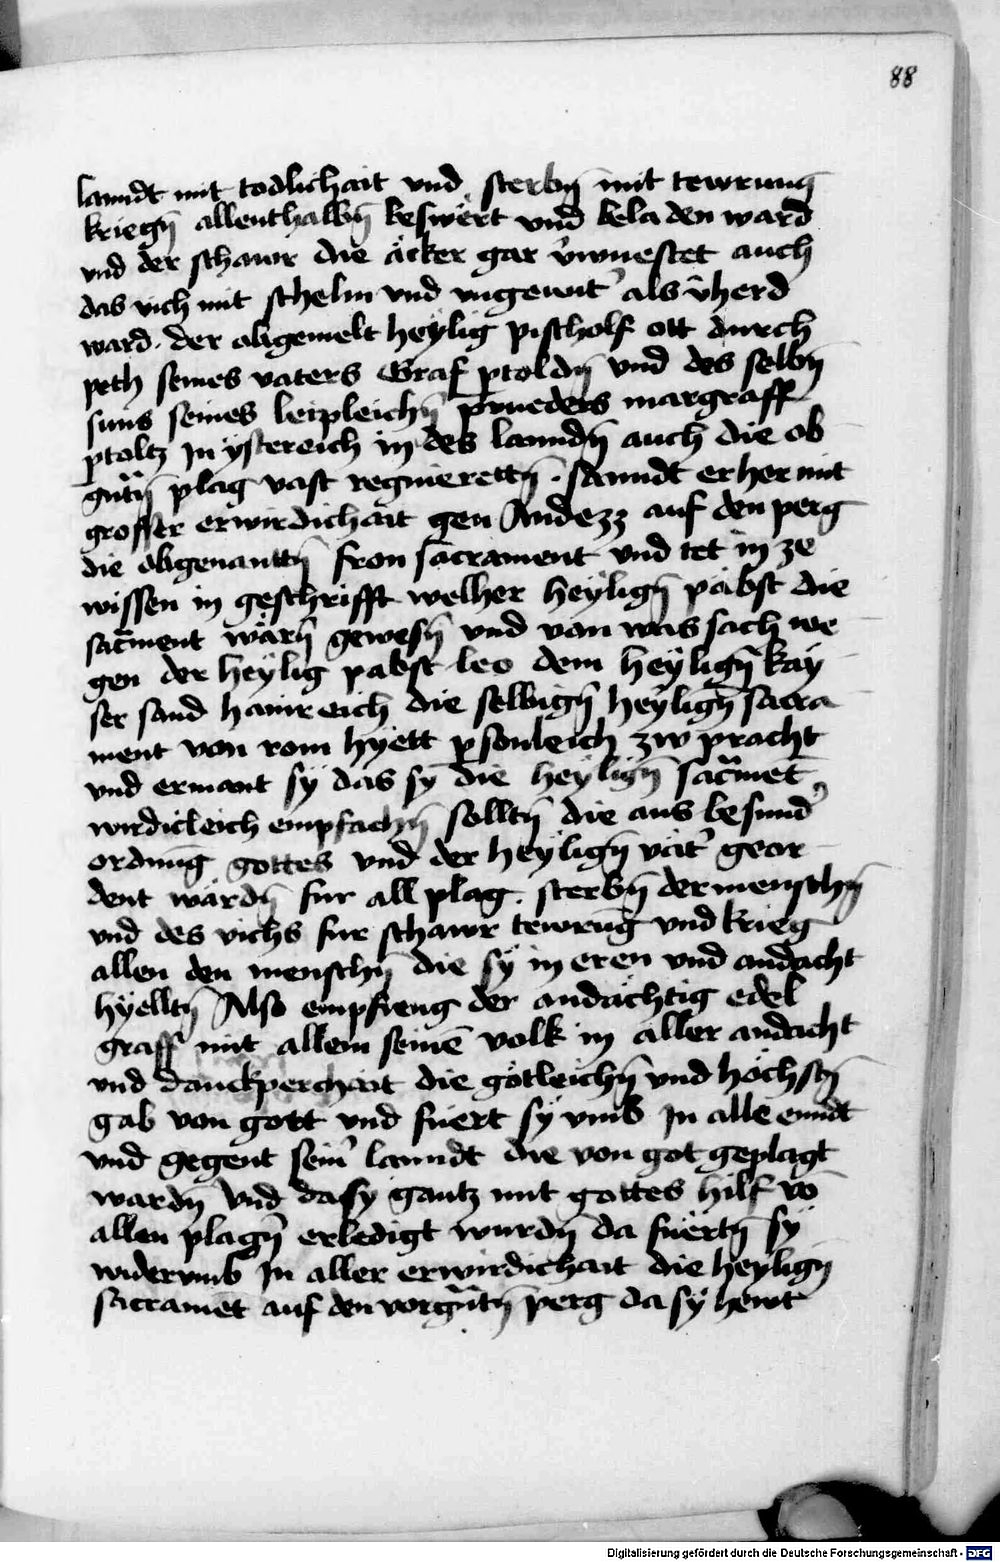 88
lanndt mit todlichait vnd sterbn̄ mit tewrung
kriegn̄ allenthalbn̄ beswërt vnd beladen ward
vnd der schawr die äcker gar v̈erwuestet auch
das vich mit schelm vnd vngewit' als v̄herd
ward. der obgemelt heÿlig pischolf ott durch
peth seines vaters Graf ptoldn̄ vnd des selbn̄
suns seines leipleichn̄ prueders margraff
ptoltz In ÿstereich in des lanndn̄ auch die ob
gn̄tn̄ plag vast regnierettn̄. sanndt er her mit
grosser erwirdichait gen Andezz auf den perg
die obgenanttn̄ fron sacrament vnd tet in ze
wissen in geschrifft welher heÿlign̄ päbst die
sac̄ment wärn̄ gewesn̄ vnd van was sach we
gen der heÿlig pabst leo dem heÿlign̄ kaÿ
ser sand hainreich die selbign̄ heÿlign̄ sacra
ment von rom hyett psonleich zw pracht
vnd ermant sÿ das sÿ die heÿlign̄ sac̄met̄
wirdicleich empfachn̄ solltn̄ die aus besund'
ordnūg gottes vnd der heÿlign̄ vät' geor
dent wärdn̄ fur all plag. sterbn̄ der menschn̄
vnd des vichs fur schawr tewrūg vnd krieg
allen den menschn̄ die sÿ in eren vnd andacht
hÿelltn̄ Also empfieng der andächtig edel
graff mit allem seinē volk in aller andacht
vnd danckperchait die götleichn̄ vnd höchstn̄
gab von gott vnd fuert sÿ vmb In alle enndt
vnd gegent sein' lanndt die von got geplagt
wardn̄ Vnd da sy gantz mit gottes hilf vō
allen plagn̄ erledigt wurdn̄ da fuërtn̄ sÿ
widerumb In aller erwirdichait die heylign̄
sacramēt auf den vorgn̄tn̄ perg da sÿ hewt
Digitalisierung gefördert durch die Deutsche Forschungsgemeinschaft - DFG